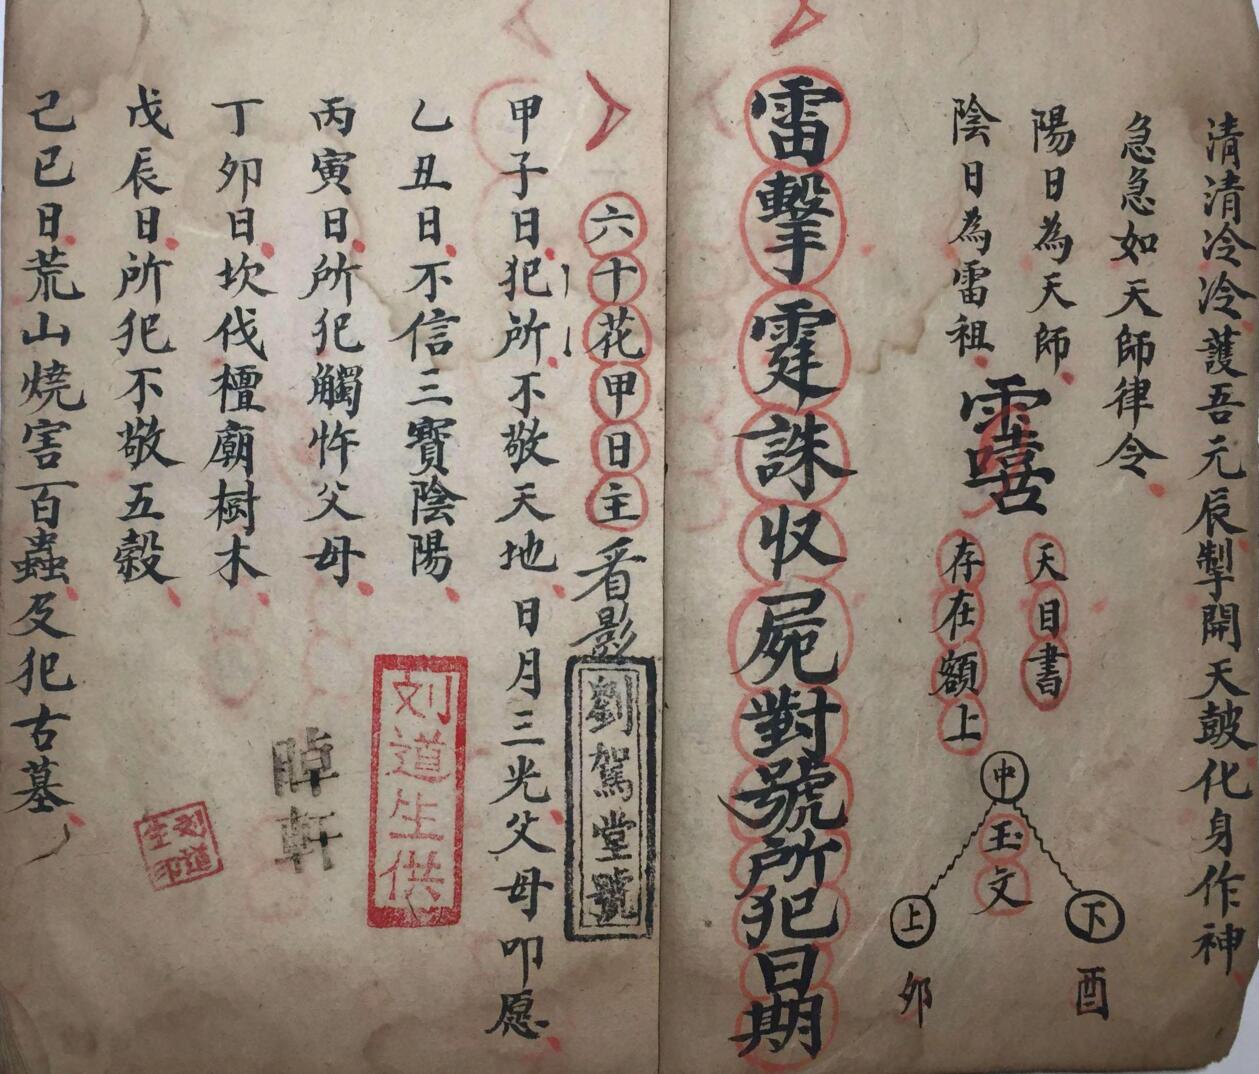 清清冷冷護吾元辰掣開天皷化身作神
急急如天師律令
陽日為天師
陰日為雷祖
天目書
存在額上
中
玉文
上
下
卯
酉
雷擊霆誅收屍對號所犯日期
六十花甲日主看影
劉駕堂號
甲子日犯所不敬天地日月三光父母叩愿
乙丑日不信三寶陰陽
刘道生供
丙寅日所犯觸忤父母
軒
丁卯日坎伐檀廟樹木
刘道生
戊辰日所犯不敬五穀
己巳日荒山燒害百蟲及犯古墓